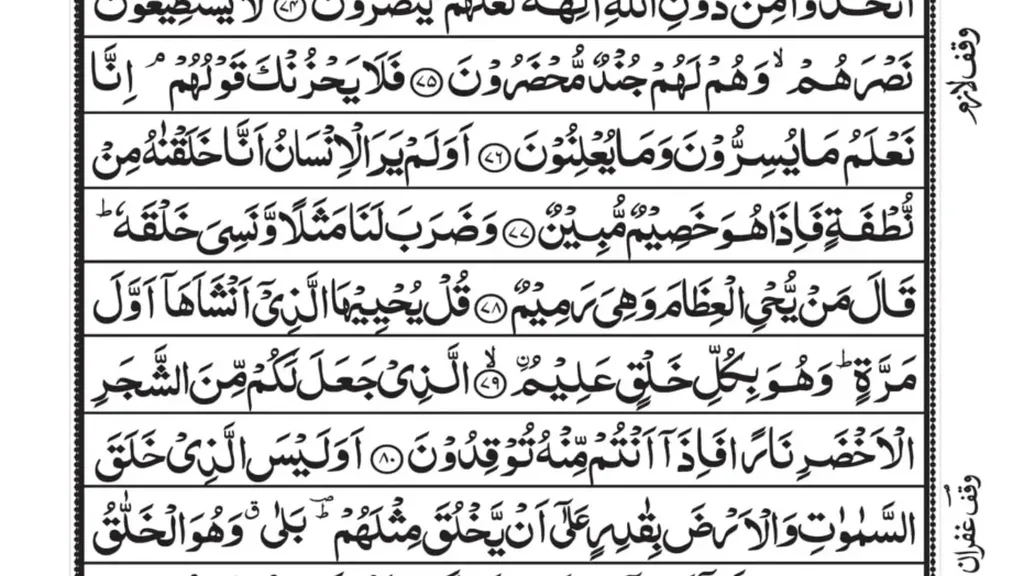 اتَّخَذُوْا مِنْ دُوْنِ اللّٰهِ اٰلِهَةً لَّعَلَّهُمْ يُنْصَرُوْنَ ﴿۷۴﴾ لَا يَسْتَطِيْعُوْنَ
نَصْرَهُمْ ۙ وَهُمْ لَهُمْ جُنْدٌ مُّحْضَرُوْنَ ﴿۷۵﴾ فَلَا يَحْزُنْكَ قَوْلُهُمْ ۘ اِنَّا
وقف لازم
نَعْلَمُ مَا يُسِرُّوْنَ وَمَا يُعْلِنُوْنَ ﴿۷۶﴾ اَوَلَمْ يَرَ الْاِنْسَانُ اَنَّا خَلَقْنٰهُ مِنْ
نُّطْفَةٍ فَاِذَا هُوَ خَصِيْمٌ مُّبِيْنٌ ﴿۷۷﴾ وَضَرَبَ لَنَا مَثَلًا وَّنَسِىَ خَلْقَهٗ ؕ
قَالَ مَنْ يُّحْىِ الْعِظَامَ وَهِىَ رَمِيْمٌ ﴿۷۸﴾ قُلْ يُحْيِيْهَا الَّذِىْۤ اَنْشَاَهَاۤ اَوَّلَ
مَرَّةٍ ؕ وَهُوَ بِكُلِّ خَلْقٍ عَلِيْمُ ۨ ﴿۷۹﴾ ۙ الَّذِىْ جَعَلَ لَكُمْ مِّنَ الشَّجَرِ
الْاَخْضَرِ نَارًا فَاِذَاۤ اَنْتُمْ مِّنْهُ تُوْقِدُوْنَ ﴿۸۰﴾ اَوَلَيْسَ الَّذِىْ خَلَقَ
السَّمٰوٰتِ وَالْاَرْضَ بِقٰدِرٍ عَلٰۤى اَنْ يَّخْلُقَ مِثْلَهُمْ ؕ بَلٰى ق وَهُوَ الْخَلّٰقُ
وقف غفران